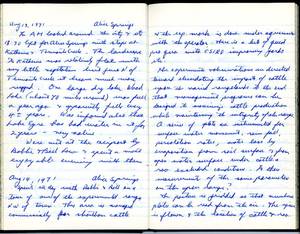 Aug 13, 1971 Alice Springs
To AM looked around the city & at
18:30 left for Alice Springs with stops at
Katherine & Tennant Creek. The landscape
to Katherine was relatively flat with
very little vegetation but just south of
Tennant Creek it became much more
rugged. One large dry lake, Wood
Lake (about 70 miles around) was full
a year ago & apparently fills every
4 or 5 years. Was informed also that
Lake Eyre has had water in it for
2 years - very native
We were met at the airport by
Bobbie & Bill Low & spent a most
enjoyable evening with them.
Aug 14, 1971 Alice Springs
Spent all day with Bobbie & Bill on a
tour of one of the experimental range
out of town. This area is managed
commercially for shorthorn cattle
with any work is done under agreement
with the grazier. There is a bit of quid
pro quo with CSIRO improving yards
etc.
The experiments & observations are directed
toward elucidating the impact of cattle
upon the arid rangelands to the end
that management programs can be
designed to maximize cattle production
while maintaining the integrity of the range.
A series of plots are instrumented for
surface water movement, rain fall,
percolation rates, water loss by
evaporation from soil surface & from
open water surface under cattle &
non cattle conditions. Is then
measurement of the same parameters
on the open range?
The system is gridded so that numbered
plots can be read from the air. The area
is flown & the location of cattle &